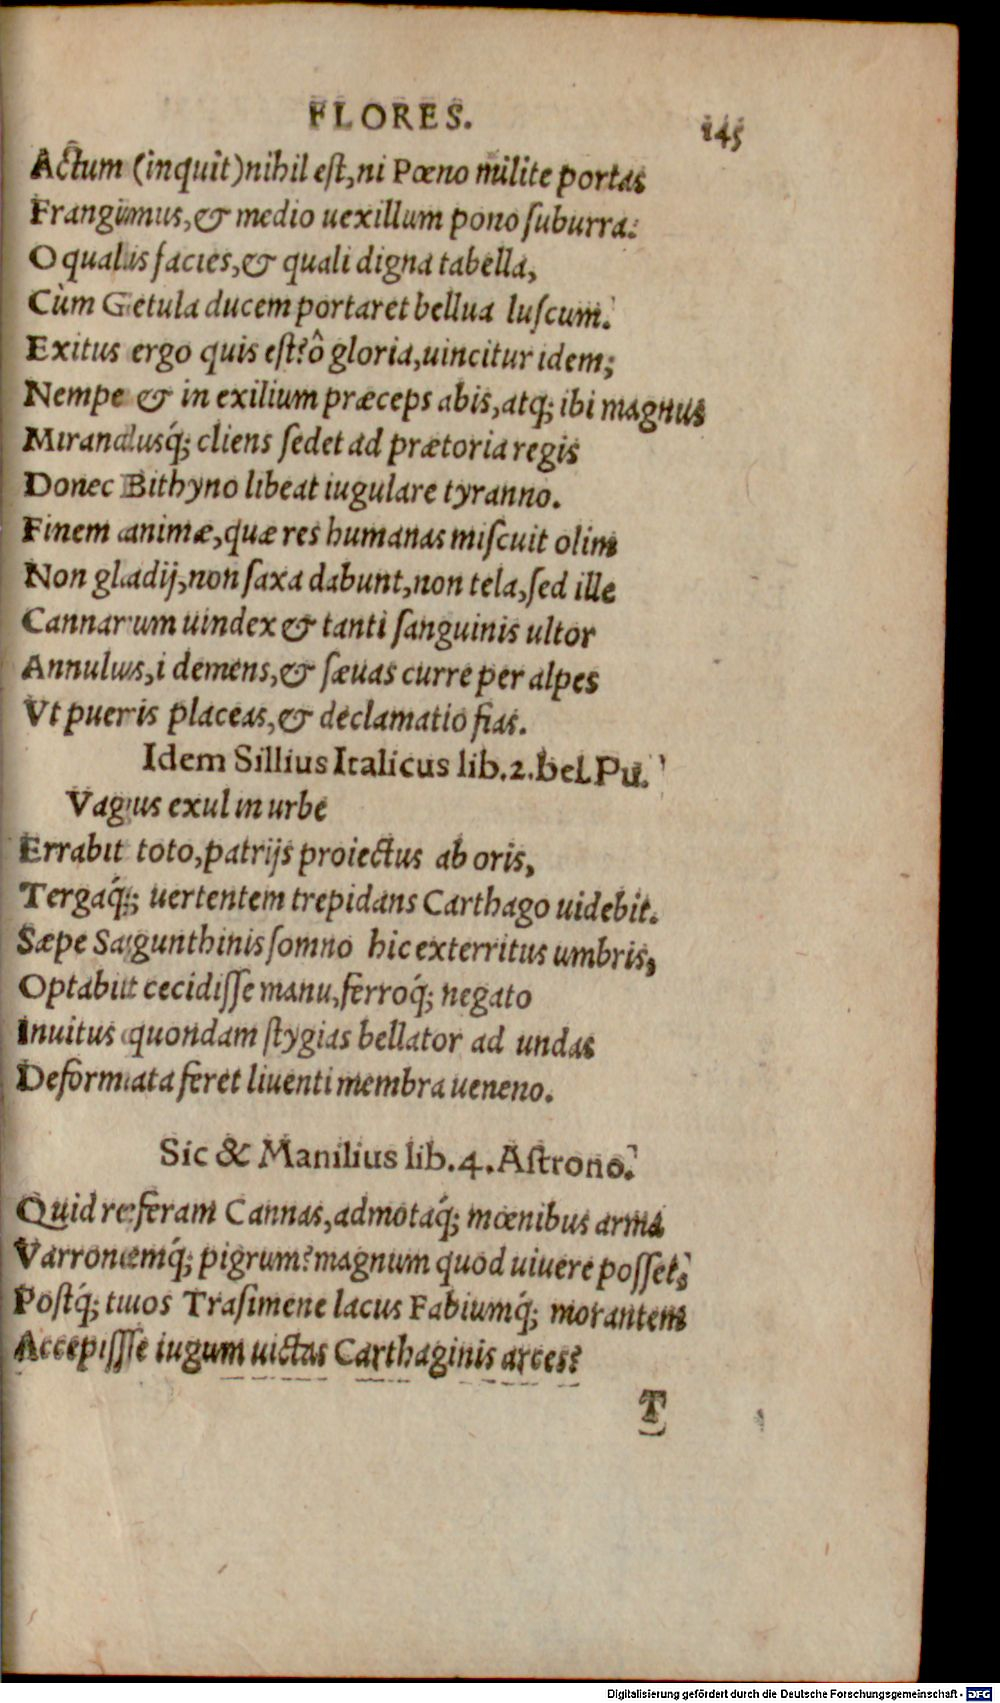 FLORES. 145
Actum (inquit) nihil est, ni Pœno milite portas
Frangimus, & medio uexillum pono suburra:
O qualis facies, & quali digna tabella,
Cùm Getula ducem portaret bellua luscum.
Exitus ergo quis est? ô gloria, uincitur idem;
Nempe & in exilium præceps abis, atq; ibi magnus
Mirandusq́; cliens sedet ad prætoria regis
Donec Bithyno libeat iugulare tyranno.
Finem animæ, quæ res humanas miscuit olim
Non gladij, non saxa dabunt, non tela, sed ille
Cannarum uindex & tanti sanguinis ultor
Annulus, i demens, & sæuas curre per alpes
Vt pueris placeas, & declamatio fias.
Idem Sillius Italicus lib. 2. bel. Pu.
Vagus exul in urbe
Errabit toto, patrijs proiectus ab oris,
Tergaq́; uertentem trepidans Carthago uidebit.
Sæpe Sagunthinis somno hic exterritus umbris,
Optabit cecidisse manu, ferroq́; negato
Inuitus quondam stygias bellator ad undas
Deformata feret liuenti membra ueneno.
Sic & Manilius lib. 4. Astrono.
Quid referam Cannas, admotaq́; mœnibus arma
Varronemq́; pigrum? magnum quod uiuere posset,
Postq́; tuos Trasimene lacus Fabiumq́; morantem
Accepisse iugum uictas Carthaginis arces?
T
Digitalisierung gefördert durch die Deutsche Forschungsgemeinschaft - DFG